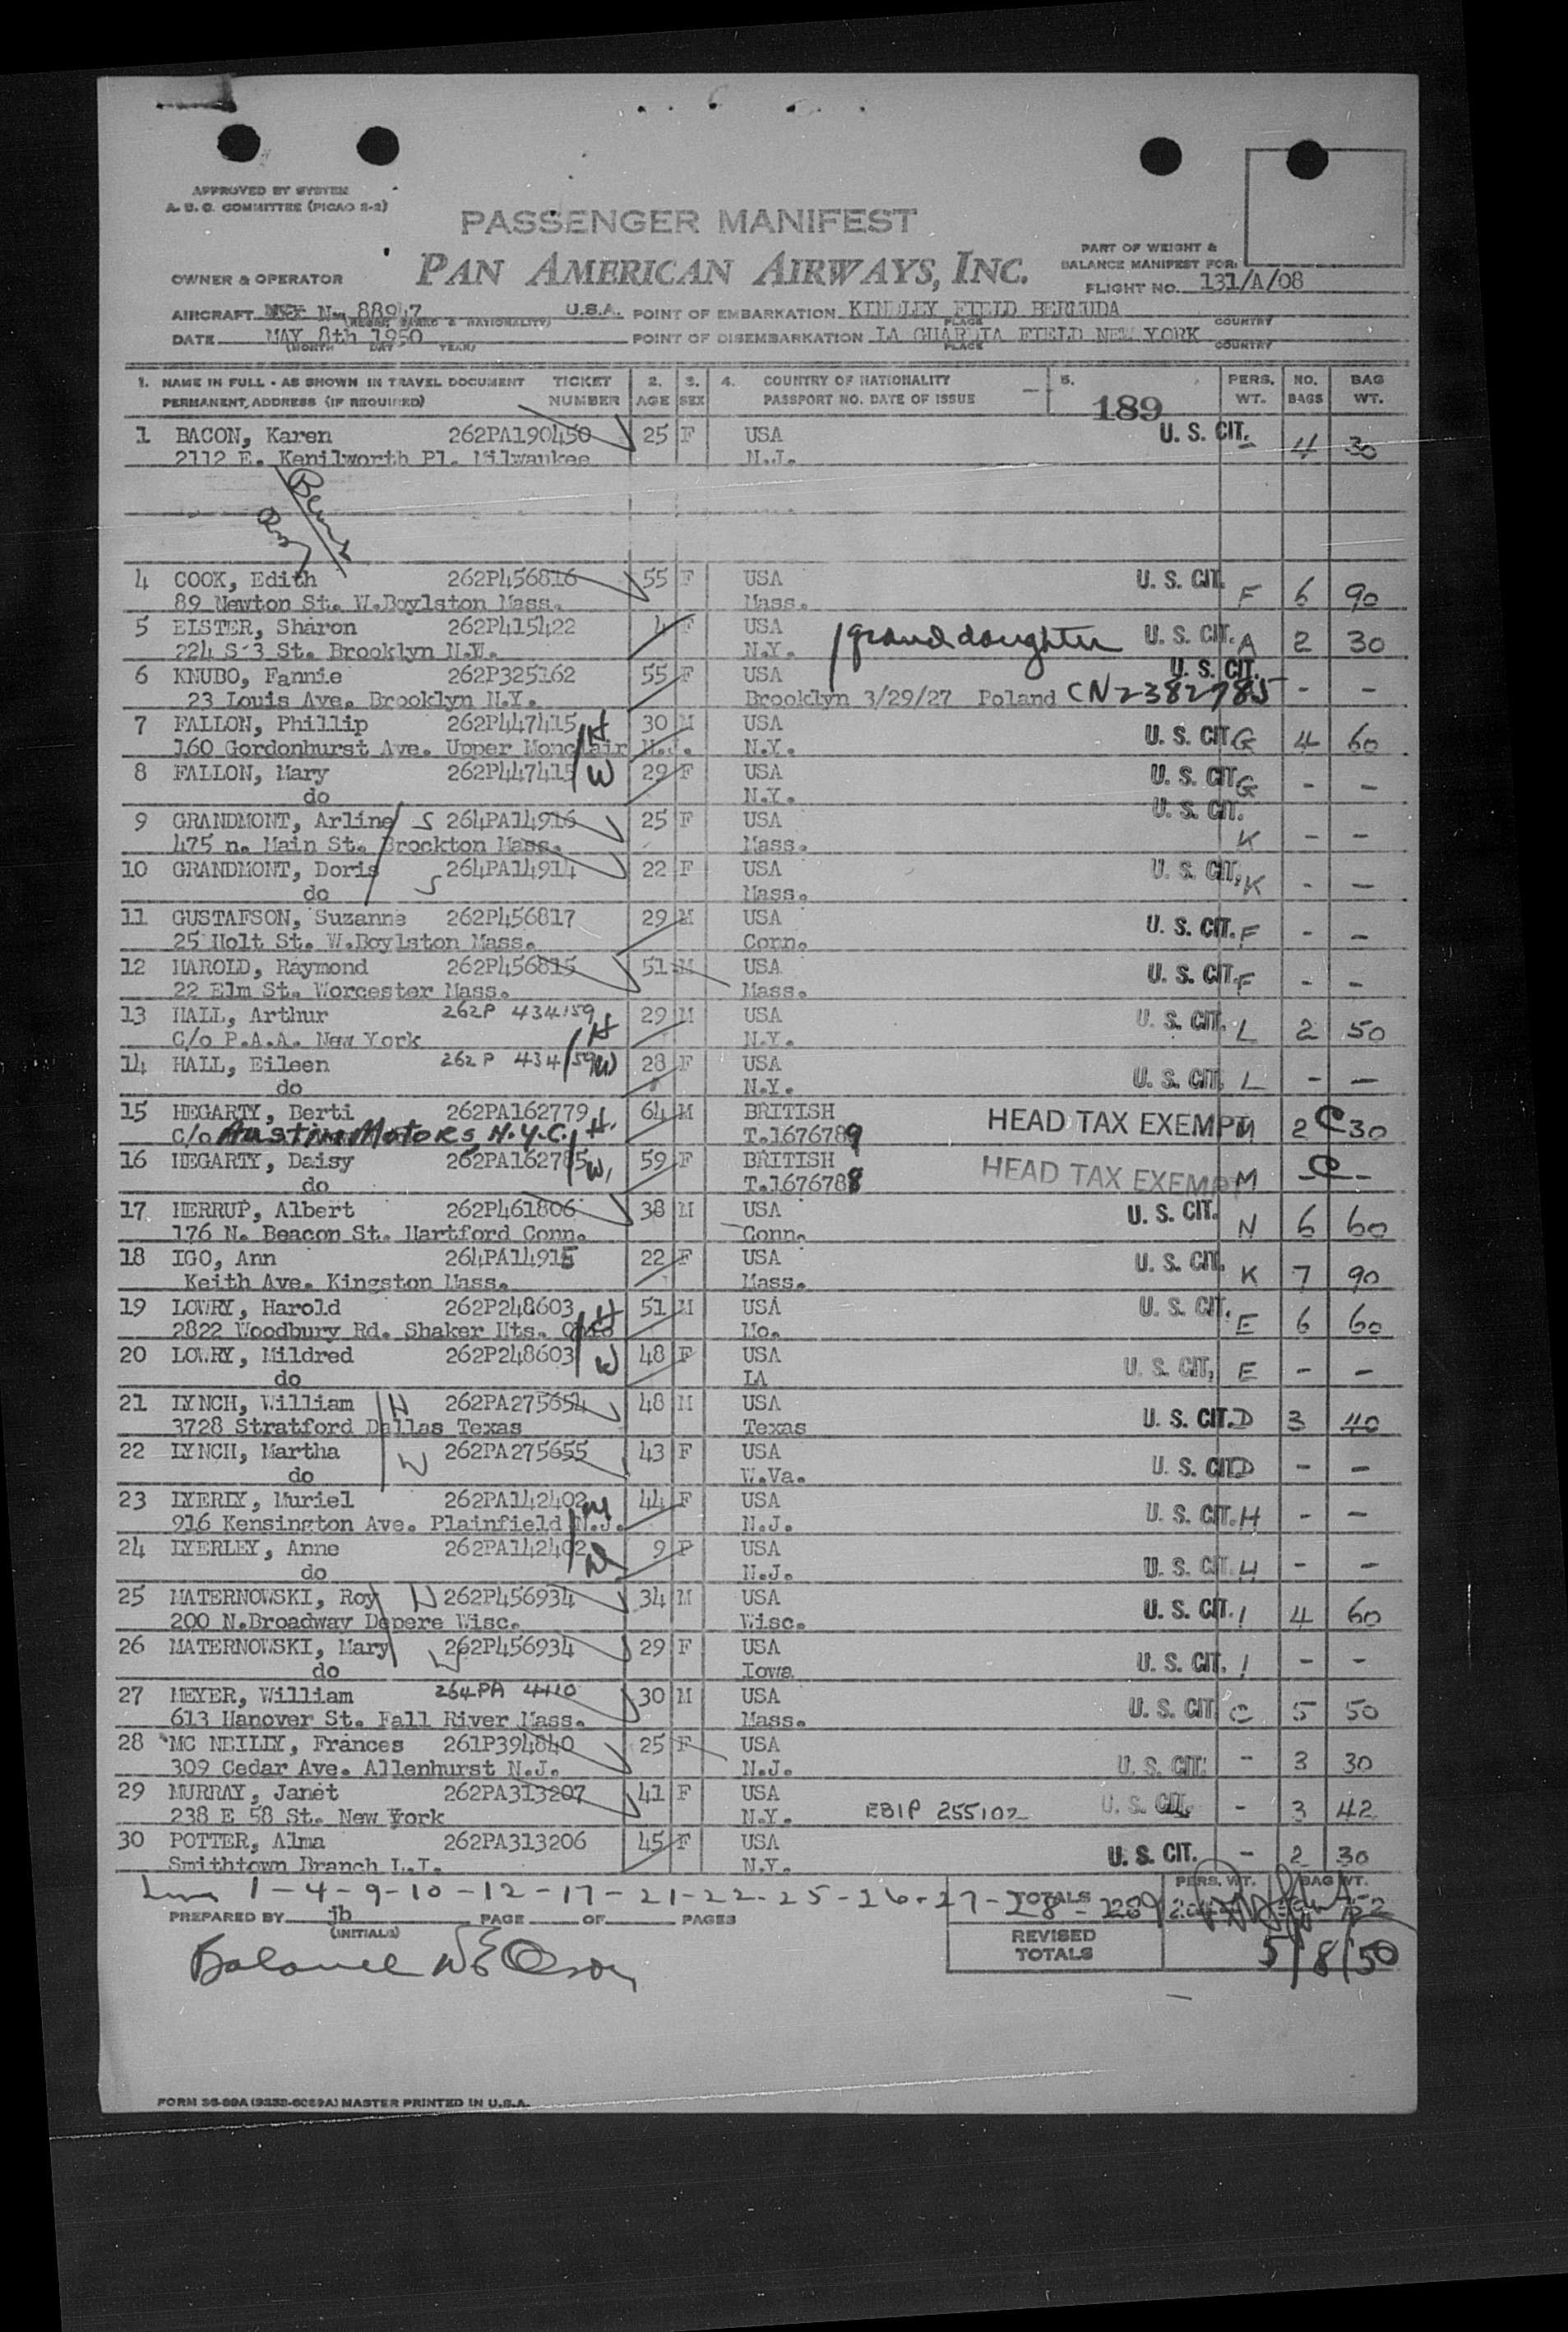 APPROVED BY SYSTEM
A. B. C. COMMITTEE (PICAO S-2)
PASSENGER MANIFEST
PAN AMERICAN AIRWAYS, INC.
OWNER & OPERATOR
PART OF WEIGHT &
BALANCE MANIFEST FOR:
FLIGHT NO. 131/A/08
AIRCRAFT N 88947 U.S.A. POINT OF EMBARKATION KINDLEY FIELD BERMUDA
(REGIS. MARKS & NATIONALITY) PLACE COUNTRY
DATE MAY 8th 1950 POINT OF DISEMBARKATION LA GUARDIA FIELD NEW YORK
(MONTH DAY YEAR) PLACE COUNTRY
1. NAME IN FULL - AS SHOWN IN TRAVEL DOCUMENT TICKET 2. 3. 4. COUNTRY OF NATIONALITY 5. PERS. NO. BAG
PERMANENT ADDRESS (IF REQUIRED) NUMBER AGE SEX PASSPORT NO. DATE OF ISSUE 189 WT. BAGS WT.
1 BACON, Karen 262PA190450 25 F USA U. S. CIT. - 4 30
2112 E. Kenilworth Pl. Milwaukee N.J.
4 COOK, Edith 262P456816 55 F USA U. S. CIT. F 6 90
89 Newton St. W.Boylston Mass. Mass.
5 EISTER, Sharon 262P415422 4 F USA granddaughter U. S. CIT. A 2 30
224 S 3 St. Brooklyn N.Y. N.Y.
6 KNUBO, Fannie 262P325162 55 F USA U. S. CIT. - -
23 Louis Ave. Brooklyn N.Y. Brooklyn 3/29/27 Poland CN2382785
7 FALLON, Phillip 262P447415 H 30 M USA U. S. CIT. G 4 60
160 Gordonhurst Ave. Upper Monclair N.J. N.Y.
8 FALLON, Mary 262P447415 W 29 F USA U. S. CIT. G - -
do N.Y.
9 GRANDMONT, Arline S 264PA14916 25 F USA U. S. CIT. K - -
475 n. Main St. Brockton Mass. Mass.
10 GRANDMONT, Doris S 264PA14914 22 F USA U. S. CIT. K - -
do Mass.
11 GUSTAFSON, Suzanne 262P456817 29 M USA U. S. CIT. F - -
25 Holt St. W.Boylston Mass. Conn.
12 HAROLD, Raymond 262P456815 51 M USA U. S. CIT. F - -
22 Elm St. Worcester Mass. Mass.
13 HALL, Arthur 262P 434159 H 29 M USA U. S. CIT. L 2 50
C/o P.A.A. New York N.Y.
14 HALL, Eileen 262P 434159 W 28 F USA U. S. CIT. L - -
do N.Y.
15 HEGARTY, Berti 262PA162779 H. 64 M BRITISH HEAD TAX EXEMPT M 2 C 30
C/o Austin Motors, N.Y.C. T.1676789
16 HEGARTY, Daisy 262PA162785 W, 59 F BRITISH HEAD TAX EXEMPT M - C -
do T.1676788
17 HERRUP, Albert 262P461806 38 M USA U. S. CIT. N 6 60
176 N. Beacon St. Hartford Conn. Conn.
18 IGO, Ann 264PA14915 22 F USA U. S. CIT. K 7 90
Keith Ave. Kingston Mass. Mass.
19 LOWRY, Harold 262P248603 H 51 M USA U. S. CIT. E 6 60
2822 Woodbury Rd. Shaker Hts. Ohio Mo.
20 LOWRY, Mildred 262P248603 W 48 F USA U. S. CIT. E - -
do LA
21 LYNCH, William H 262PA275654 48 M USA U. S. CIT. D 3 40
3728 Stratford Dallas Texas Texas
22 LYNCH, Martha W 262PA275655 43 F USA U. S. CIT. D - -
do W.Va.
23 LYERLY, Muriel 262PA142402 M 44 F USA U. S. CIT. H - -
916 Kensington Ave. Plainfield N.J. N.J.
24 LYERLEY, Anne 262PA142402 D 9 F USA U. S. CIT. H - -
do N.J.
25 MATERNOWSKI, Roy H 262P456934 34 M USA U. S. CIT. I 4 60
200 N.Broadway Depere Wisc. Wisc.
26 MATERNOWSKI, Mary W 262P456934 29 F USA U. S. CIT. I - -
do Iowa
27 MEYER, William 264PA 4410 30 M USA U. S. CIT. C 5 50
613 Hanover St. Fall River Mass. Mass.
28 MC NEILLY, Frances 261P394840 25 F USA U. S. CIT. - 3 30
309 Cedar Ave. Allenhurst N.J. N.J.
29 MURRAY, Janet 262PA313207 41 F USA U. S. CIT. - 3 42
238 E 58 St. New York N.Y. EBIP 255102
30 POTTER, Alma 262PA313206 45 F USA U. S. CIT. - 2 30
Smithtown Branch L.I. N.Y.
1-4-9-10-12-17-21-22-25-26-27-28-
TOTALS PERS. WT. BAG WT.
PREPARED BY jb PAGE OF PAGES
(INITIALS)
REVISED
TOTALS
5/8/50
Balance
FORM 36-89A (9238-6089A) MASTER PRINTED IN U.S.A.